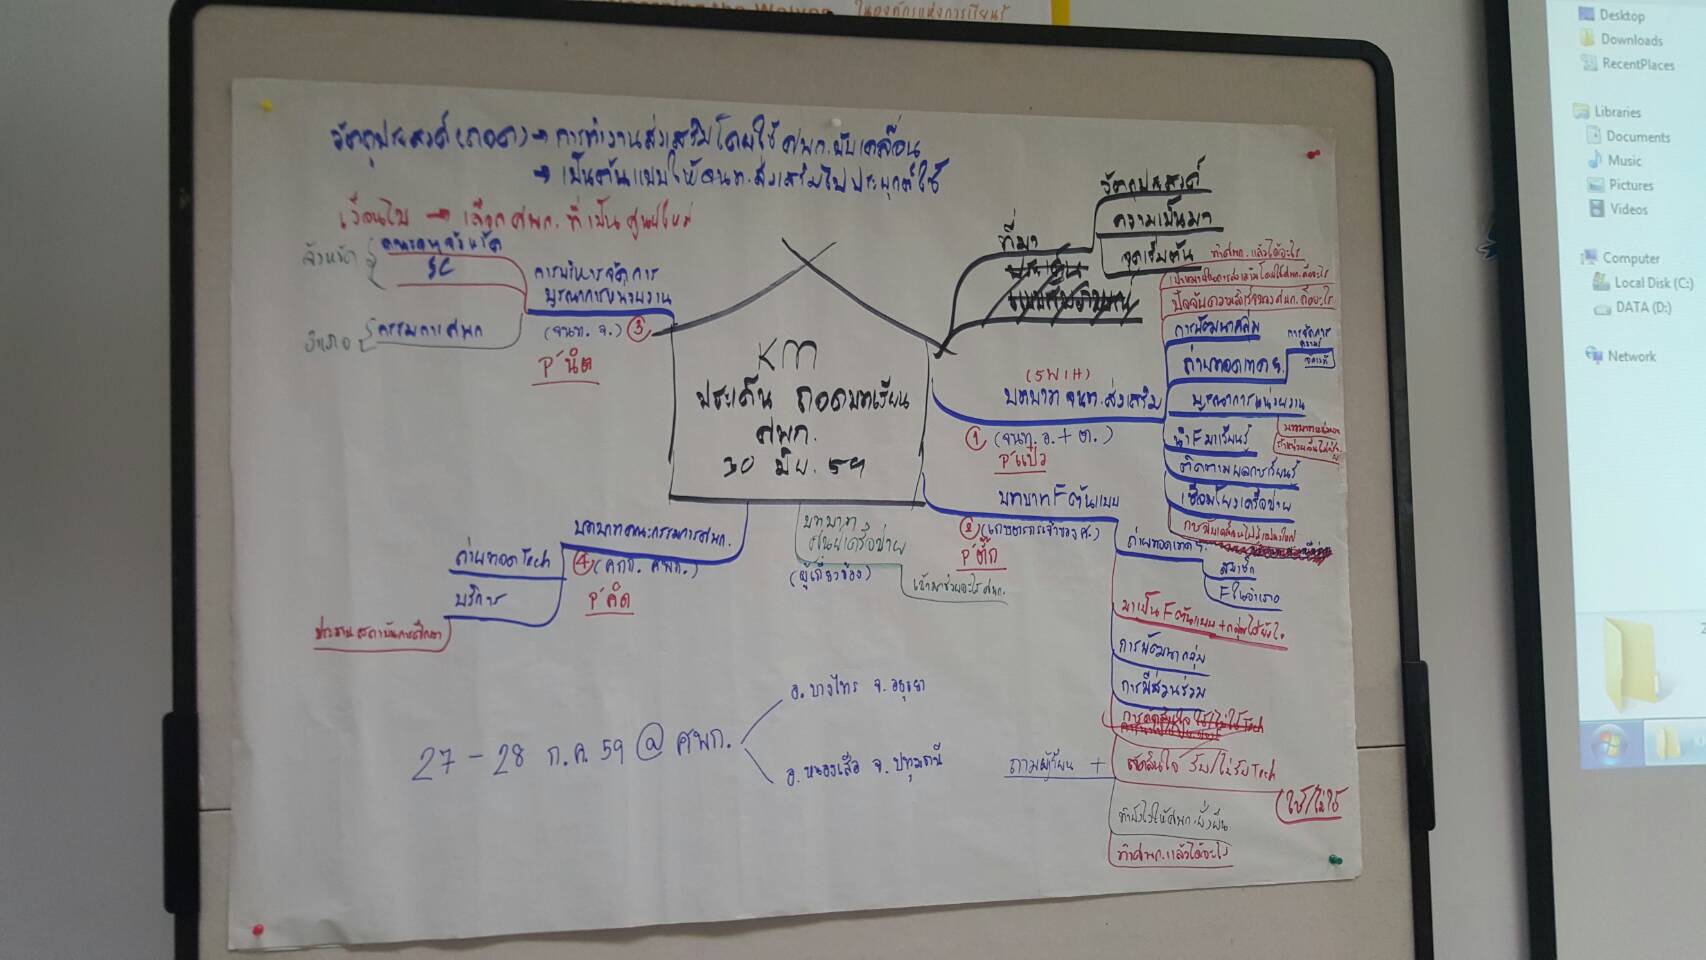 ในองค์กรแห่งการเรียนรู้
วัตถุประสงค์ (ถอด) → การทำงานส่งเสริมโดยใช้ ศพก. ขับเคลื่อน
→ เป็นต้นแบบให้ จนท. ส่งเสริมไปประยุกต์ใช้
เงื่อนไข → เลือก ศพก. ที่เป็นศูนย์ใหม่
จังหวัด
SC
อำเภอ
กรรมการ ศพก
การบริหารจัดการ
บูรณาการหน่วยงาน
(จนท. จ.) ③
P'นิด
KM
ประเด็น ถอดบทเรียน
ศพก.
30 มิย. 59
ที่มา
วัตถุประสงค์
ความเป็นมา
จุดเริ่มต้น
ทำศพก. แล้วได้อะไร
(5W1H)
บทบาท จนท. ส่งเสริม
① (จนท. อ. + ต.)
P'แป๋ว
การพัฒนากลุ่ม
ถ่ายทอดเทคฯ.
การจัดการ
ความรู้
บูรณาการหน่วยงาน
นำ F มาเรียนรู้
ติดตามผลการเรียนรู้
เชื่อมโยงเครือข่าย
บทบาท F ต้นแบบ
② (เกษตรกรเจ้าของ ศ.)
P'ตั๊ก
ถ่ายทอดเทคฯ.
สมาชิก
F ในอำเภอ
มาเป็น F ต้นแบบ + กลุ่มได้ยังไง
การพัฒนากลุ่ม
การมีส่วนร่วม
ถามผู้เรียน +
ตัดสินใจ รับ/ไม่รับ Tech
ใช้/ไม่ใช้
ทำยังไงให้ศพก. ยั่งยืน
ทำศพก. แล้วได้อะไร
บทบาท
ศูนย์เครือข่าย
(ผู้เกี่ยวข้อง)
เข้ามาช่วยอะไร ศพก.
บทบาทคณะกรรมการศพก.
④ (คกก. ศพก.)
P'คิด
ถ่ายทอด Tech
บริการ
27 - 28 ก.ค. 59 @ ศพก.
อ. บางไทร จ. อยุธยา
อ. หนองเสือ จ. ปทุมธานี
Desktop
Downloads
RecentPlaces
Libraries
Documents
Music
Pictures
Videos
Computer
Local Disk (C:)
DATA (D:)
Network